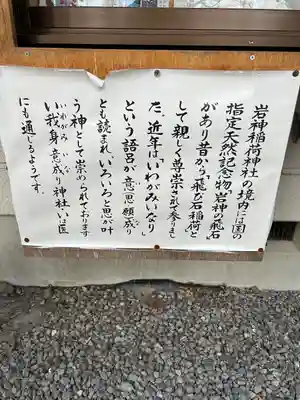 岩神稲荷神社の境内には国の
指定天然記念物「岩神の飛石」
があり昔から「飛び石稲荷」と
して親しく尊崇されて参りまし
た。近年は「いわがみいなり」
という語呂が意(思・願)成り
とも読まれ、いろいろと思が叶
う神として崇められております
い我身意成り神社いは医
いわがみ いなり
にも通じるようです。